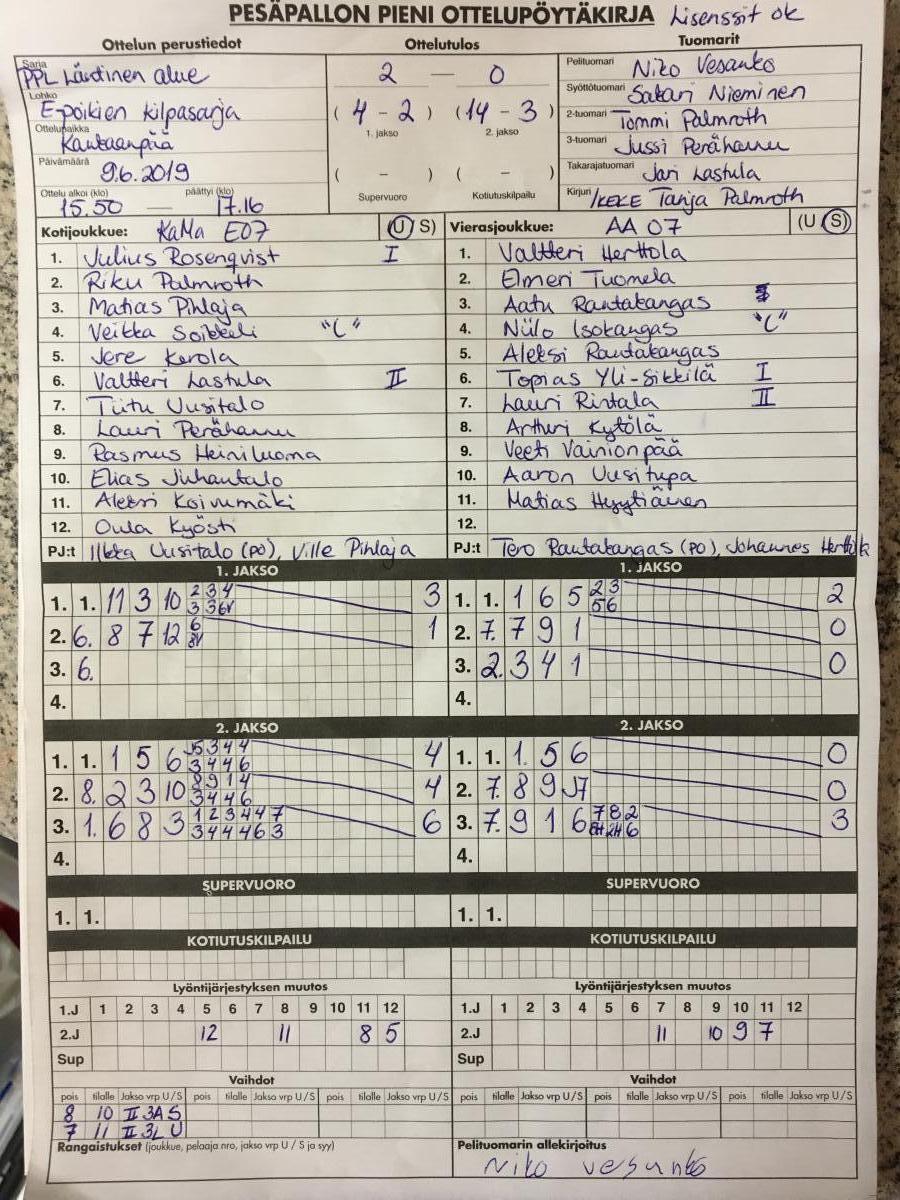 PESÄPALLON PIENI OTTELUPÖYTÄKIRJA Lisenssit ok
Ottelun perustiedot
Sarja
PPL Läntinen alue
Lohko
E-poikien kilpasarja
Ottelupaikka
Kankaanpää
Päivämäärä
9.6.2019
Ottelu alkoi (klo) päättyi (klo)
15.50 — 17.16
Ottelutulos
2 — 0
( 4 - 2 ) (14 - 3 )
1. jakso 2. jakso
( - ) ( - )
Supervuoro Kotiutuskilpailu
Tuomarit
Pelituomari Niko Vesanko
Syöttötuomari Sakari Nieminen
2-tuomari Tommi Palmroth
3-tuomari Jussi Perähannu
Takarajatuomari Jari Lastula
Kirjuri /KEKE Tanja Palmroth
Kotijoukkue: KaMa E07 (U S)
1. Julius Rosenqvist I
2. Riku Palmroth
3. Matias Pihlaja
4. Veikka Soikkeli "C"
5. Jere Kerola
6. Valtteri Lastula II
7. Tiitu Uusitalo
8. Lauri Perähannu
9. Rasmus Heiniluoma
10. Elias Juhantalo
11. Aleksi Koivumäki
12. Oula Kyösti
PJ:t Ilkka Uusitalo (PO), Ville Pihlaja
Vierasjoukkue: AA 07 (U S)
1. Valtteri Herttola
2. Elmeri Tuomela
3. Aatu Rautakangas
4. Niilo Isokangas "C"
5. Aleksi Rautakangas
6. Topias Yli-Sikkilä I
7. Lauri Rintala II
8. Artturi Kytölä
9. Veeti Vainionpää
10. Aaron Uusitupa
11. Matias Hyytiäinen
12.
PJ:t Tero Rautakangas (PO), Johannes
1. JAKSO
1. 1. 11 3 10 2 3 4 3
3 3 6V
2. 6. 8 7 12 6 1
8V
3. 6.
4.
1. JAKSO
1. 1. 1 6 5 2 3 2
5 6
2. 7. 7 9 1 0
3. 2. 3 4 1 0
4.
2. JAKSO
1. 1. 1 5 6 J5 3 4 4 4
3 4 4 6
2. 8. 2 3 10 8 9 1 4 4
3 4 4 6
3. 1. 6 8 3 1 2 3 4 4 7 6
3 4 4 4 6 3
4.
2. JAKSO
1. 1. 1. 5 6 0
2. 7. 8 9 J7 0
3. 7. 9 1 6 7 8 2 3
8H 2H 6
4.
SUPERVUORO
1. 1.
SUPERVUORO
1. 1.
KOTIUTUSKILPAILU
KOTIUTUSKILPAILU
Lyöntijärjestyksen muutos
1.J 1 2 3 4 5 6 7 8 9 10 11 12
2.J 12 11 8 5
Sup
Lyöntijärjestyksen muutos
1.J 1 2 3 4 5 6 7 8 9 10 11 12
2.J 11 10 9 7
Sup
Vaihdot
pois tilalle Jakso vrp U/S pois tilalle Jakso vrp U/S pois tilalle Jakso vrp U/S
8 10 II 3A S
7 11 II 3L U
Vaihdot
pois tilalle Jakso vrp U/S pois tilalle Jakso vrp U/S pois tilalle Jakso vrp U/S
Rangaistukset (joukkue, pelaaja nro, jakso vrp U / S ja syy)
Pelituomarin allekirjoitus
Niko Vesanko